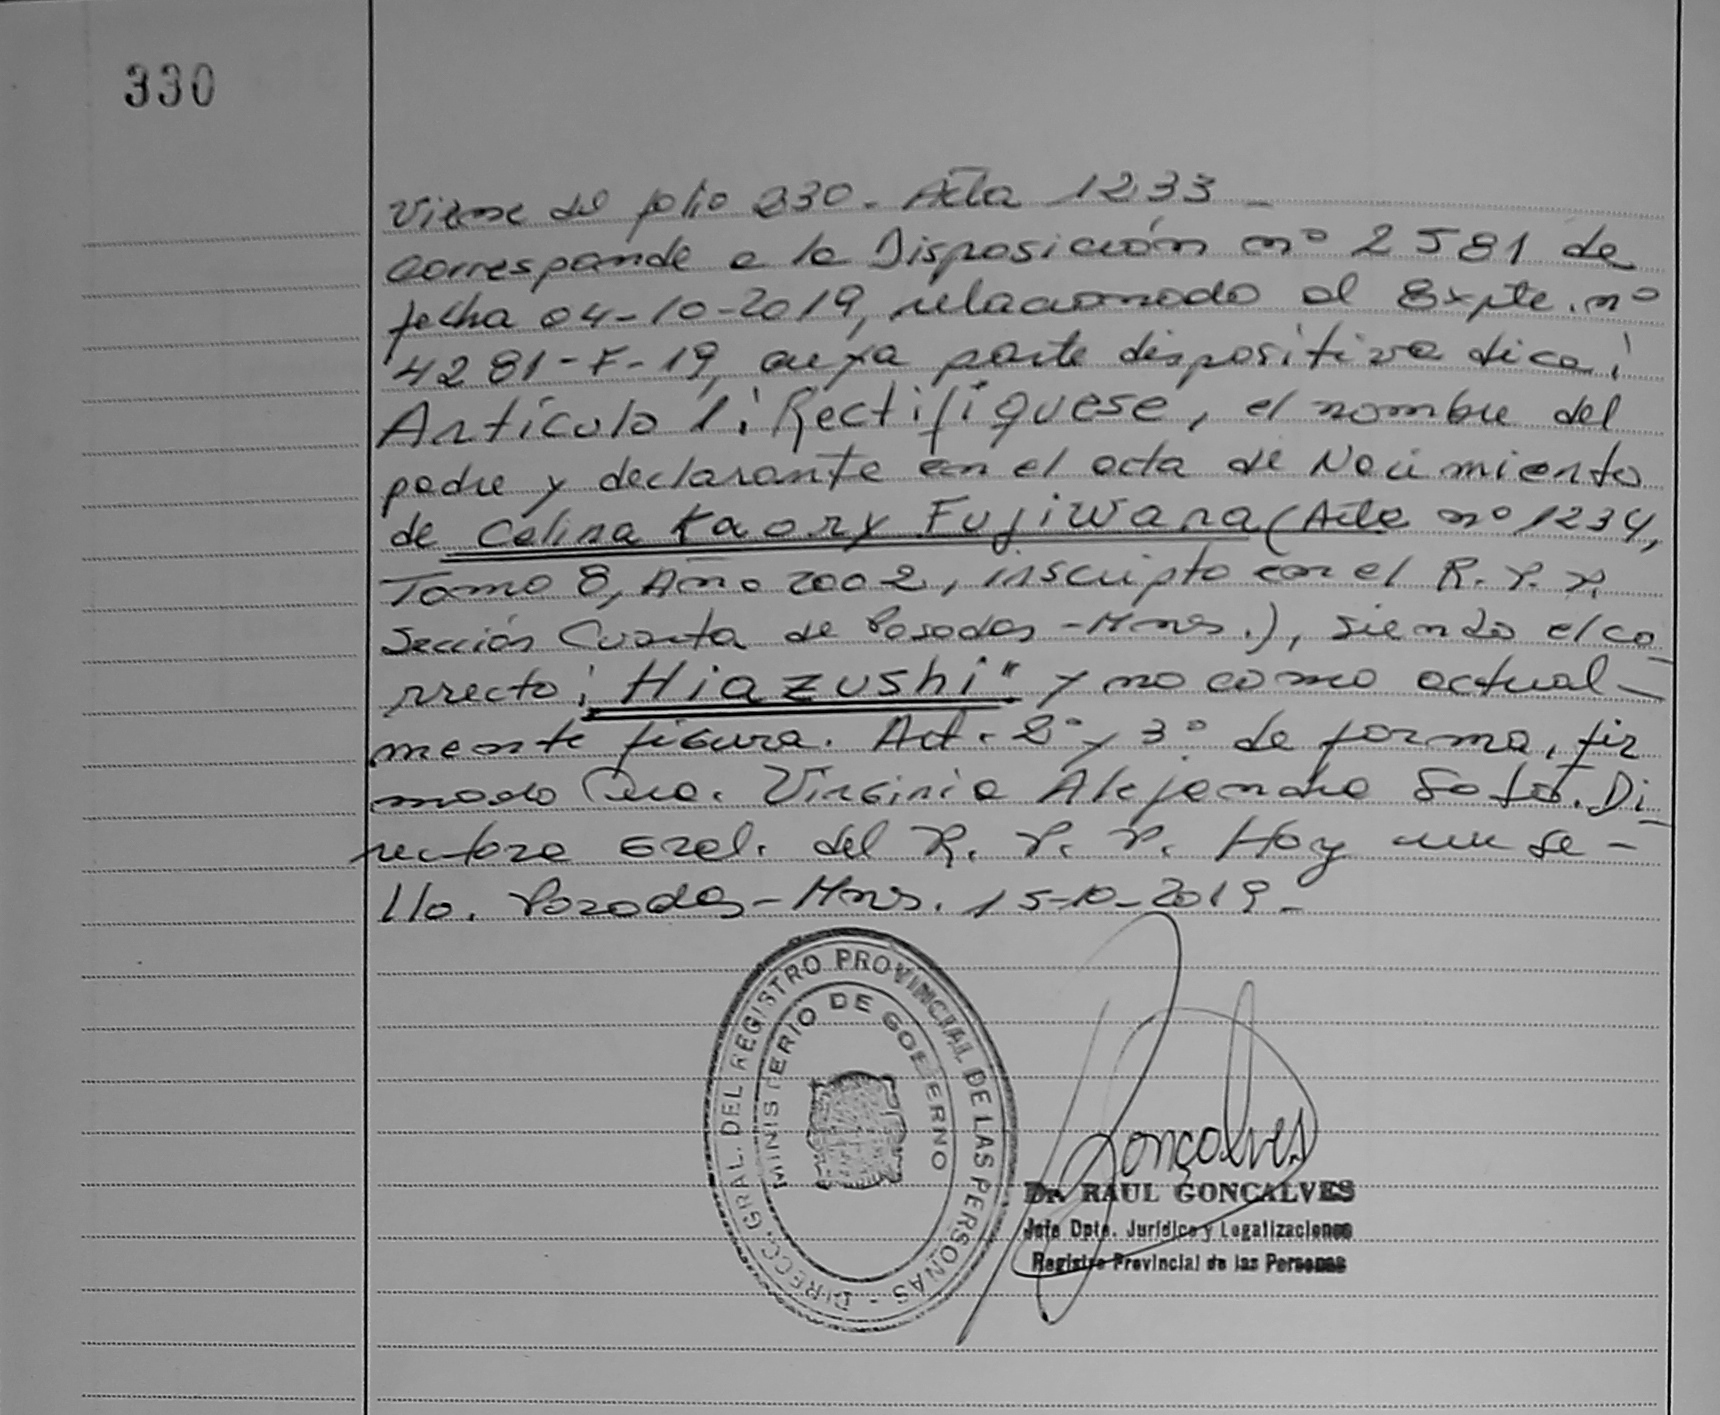 330
Viene del folio 230. Acta 1233 -
corresponde a la Disposición nº 2581 de
fecha 04-10-2019, relacionado al Expte. nº
4281-F-19, cuya parte dispositiva dice:
Artículo 1: Rectifíquese, el nombre del
padre y declarante en el acta de Nacimiento
de Celina Kaory Fujiwara (Acta nº 1234,
Tomo 8, Año 2002, inscripto en el R. P. P.
Sección Cuarta de Posadas - Mnes.), siendo el co-
rrecto: "Hiazushi" y no como actual-
mente figura. Art. 2º y 3º de forma, fir
mado Dra. Virginia Alejandra Soto. Di-
rectora Gral. del R. P. P. Hay un se-
llo. Posadas - Mnes. 15-10-2019 -
DIRECC. GRAL. DEL REGISTRO PROVINCIAL DE LAS PERSONAS -
MINISTERIO DE GOBIERNO
Gonçalves
Dr. RAUL GONÇALVES
Jefe Dpto. Jurídico y Legalizaciones
Registro Provincial de las Personas